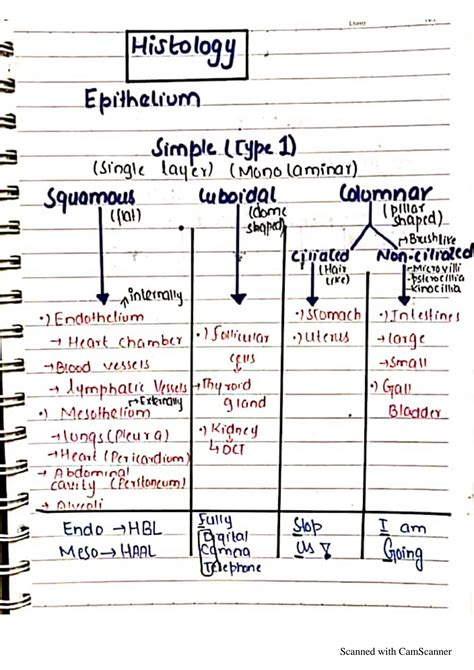 Histology
Epithelium
Simple (Type 1)
(Single layer) (Monolaminar)
Squamous
(flat)
Cuboidal
(dome shaped)
Columnar
(pillar shaped)
→Brushlike
Ciliated
(Hair like)
Non-ciliated
→Microvilli
kinocillia
→internally
•) Endothelium
→ Heart chamber
→Blood vessels
→ lymphatic vessels
→Externally
•) Mesothelium
→lungs (Pleura)
→Heart (Pericardium)
→ Abdominal cavity (Peritoneum)
→ Alveoli
•) follicular cells
→Thyroid gland
•) Kidney
↳ DCT
•) Stomach
•) Uterus
•) Intestines
→large
→small
•) Gall Bladder
Endo → HBL
Meso → HAAL
Fully
Digital
Telephone
Stop
Us
I am
Going
Scanned with CamScanner